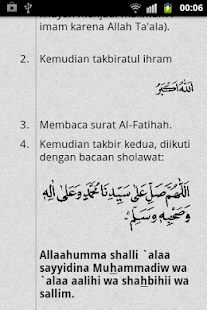 00:06
imam karena Allah Ta'ala).
2. Kemudian takbiratul ihram
اَللهُ اَكْبَرُ
3. Membaca surat Al-Fatihah.
4. Kemudian takbir kedua, diikuti
dengan bacaan sholawat:
اَللّٰهُمَّ صَلِّ عَلٰى سَيِّدِنَا مُحَمَّدٍ وَعَلٰى اٰلِهِ
وَصَحْبِهِ وَسَلِّمْ
Allaahumma shalli `alaa
sayyidina Muhammadiw wa
`alaa aalihi wa shahbihii wa
sallim.